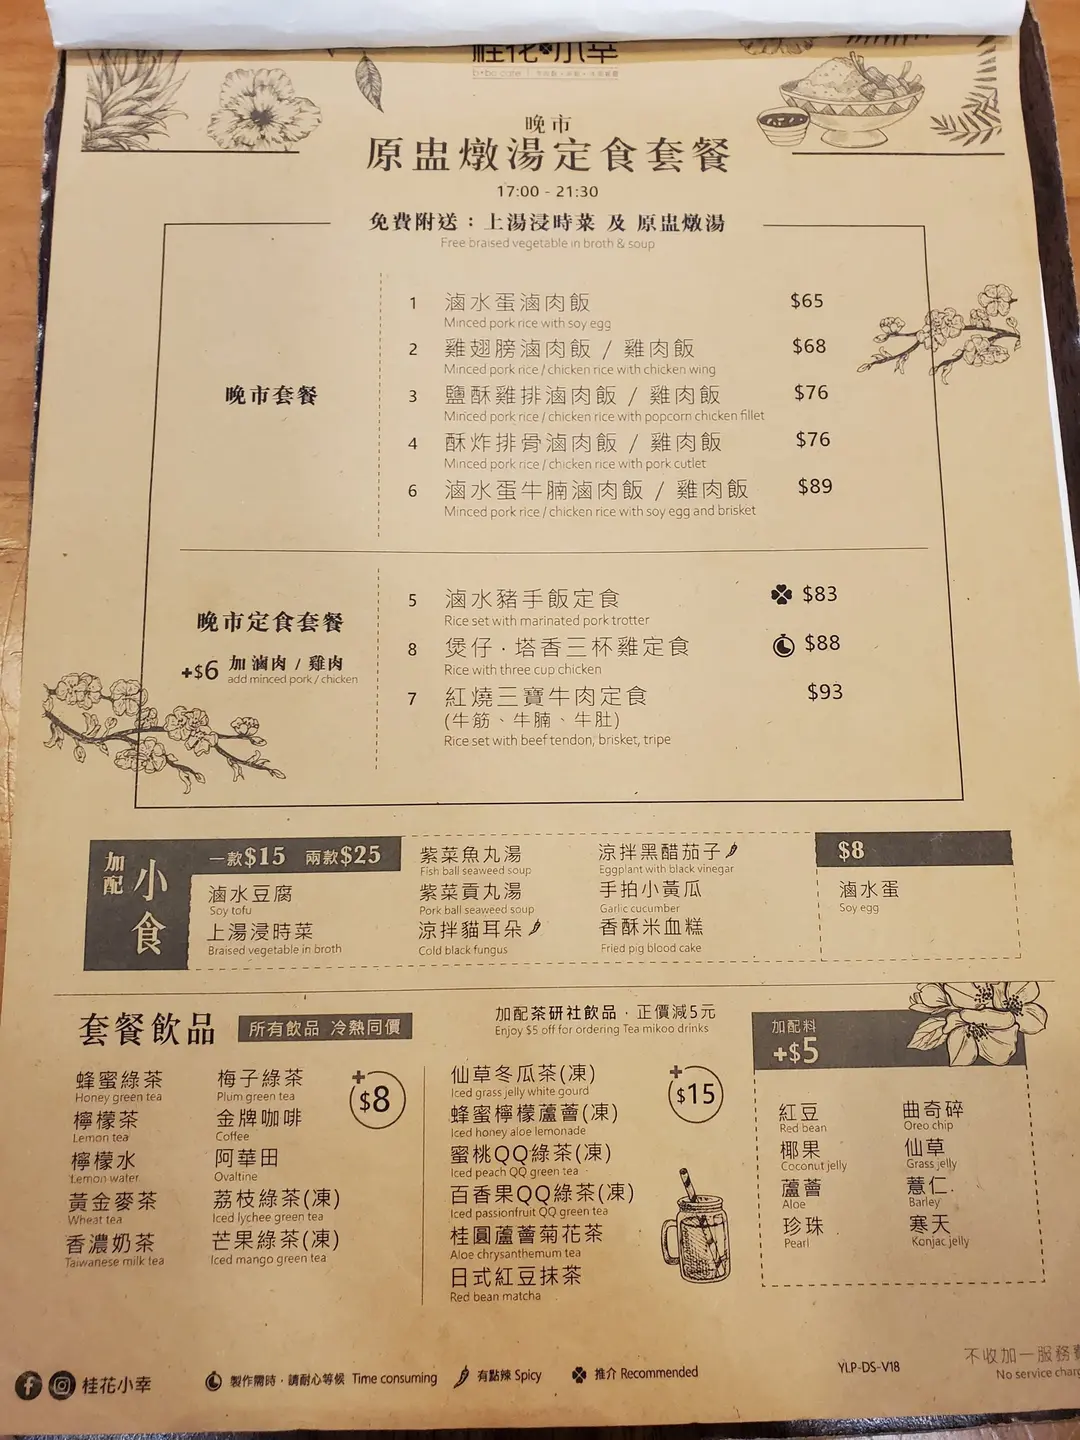 桂花小幸
晚市
原盅燉湯定食套餐
17:00 - 21:30
免費附送：上湯浸時菜 及 原盅燉湯
Free braised vegetable in broth & soup
晚市套餐
1 滷水蛋滷肉飯 $65
Minced pork rice with soy egg
2 雞翅膀滷肉飯 / 雞肉飯 $68
Minced pork rice / chicken rice with chicken wing
3 鹽酥雞排滷肉飯 / 雞肉飯 $76
Minced pork rice / chicken rice with popcorn chicken fillet
4 酥炸排骨滷肉飯 / 雞肉飯 $76
Minced pork rice / chicken rice with pork cutlet
6 滷水蛋牛腩滷肉飯 / 雞肉飯 $89
Minced pork rice / chicken rice with soy egg and brisket
晚市定食套餐
+$6 加滷肉 / 雞肉
add minced pork / chicken
5 滷水豬手飯定食 $83
Rice set with marinated pork trotter
8 煲仔．塔香三杯雞定食 $88
Rice with three cup chicken
7 紅燒三寶牛肉定食 $93
(牛筋、牛腩、牛肚)
Rice set with beef tendon, brisket, tripe
加配小食
一款$15 兩款$25
滷水豆腐
Soy tofu
上湯浸時菜
Braised vegetable in broth
紫菜魚丸湯
Fish ball seaweed soup
紫菜貢丸湯
Pork ball seaweed soup
涼拌貓耳朵
Cold black fungus
涼拌黑醋茄子
Eggplant with black vinegar
手拍小黃瓜
Garlic cucumber
香酥米血糕
Fried pig blood cake
$8
滷水蛋
Soy egg
套餐飲品
所有飲品 冷熱同價
加配茶研社飲品．正價減5元
Enjoy $5 off for ordering Tea mikoo drinks
+$8
蜂蜜綠茶
Honey green tea
檸檬茶
Lemon tea
檸檬水
Lemon water
黃金麥茶
Wheat tea
香濃奶茶
Taiwanese milk tea
梅子綠茶
Plum green tea
金牌咖啡
Coffee
阿華田
Ovaltine
荔枝綠茶(凍)
Iced lychee green tea
芒果綠茶(凍)
Iced mango green tea
+$15
仙草冬瓜茶(凍)
Iced grass jelly white gourd
蜂蜜檸檬蘆薈(凍)
Iced honey aloe lemonade
蜜桃QQ綠茶(凍)
Iced peach QQ green tea
百香果QQ綠茶(凍)
Iced passionfruit QQ green tea
桂圓蘆薈菊花茶
Aloe chrysanthemum tea
日式紅豆抹茶
Red bean matcha
加配料
+$5
紅豆
Red bean
椰果
Coconut jelly
蘆薈
Aloe
珍珠
Pearl
曲奇碎
Oreo chip
仙草
Grass jelly
薏仁
Barley
寒天
Konjac jelly
桂花小幸
製作需時．請耐心等候 Time consuming
有點辣 Spicy
推介 Recommended
YLP-DS-V18
不收加一服務
No service